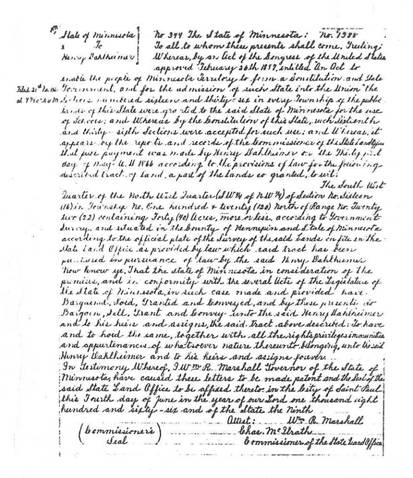 State of Minnesota No 344 The State of Minnesota: No. 7388
To To all to whom these presents shall come, Greeting:
Henry Dahlheimer Whereas, by an Act of the Congress of the United States
approved February 26th 1857, entitled An Act to
enable the people of Minnesota Territory to form a Constitution and State
Government, and for the admission of such State into the Union the
Sections numbered sixteen and thirty-six in every Township of the public
lands of this State were granted to the said State of Minnesota for the use
of Schools; and Whereas by the Constitution of this State, such Sixteenth
and thirty-sixth Sections were accepted for such use; and Whereas, it
appears by the reports and records of the Commissioner of the State Land Office
that full payment was made by Henry Dahlheimer on the Thirty first
day of May A.D. 1866 according to the provisions of law for the following
described tract of land, a part of the lands so granted, to wit:
The South West
Quarter of the North West Quarter (SW¼ of NW¼) of Section No. Sixteen
(16) in Township No. One hundred & Twenty (120) North of Range No. Twenty
two (22) containing Forty (40) Acres, more or less, according to Government
Survey, and situated in the County of Hennepin and State of Minnesota
according to the official plats of the Survey of the said lands on file in the
State Land Office as provided by law which said tract has been
purchased in pursuance of law by the said Henry Dahlheimer
Now know ye, That the state of Minnesota in consideration of the
premises, and in conformity with the several Acts of the Legislature of
the State of Minnesota, in such case made and provided have
Bargained, Sold, Granted and Conveyed, and by these presents do
Bargain, Sell, Grant and Convey unto the said Henry Dahlheimer
and to his heirs and assigns, the said Tract above described: To have
and to hold the same, together with all the rights, privileges, immunities
and appurtenances of whatsoever nature thereunto belonging, unto the said
Henry Dahlheimer and to his heirs and assigns forever
In Testimony Whereof, I Wm R. Marshall Governor of the State of
Minnesota, have caused these letters to be made patent and the Seal of the
said State Land Office to be affixed thereto, in the City of Saint Paul
this Fourth day of June in the year of our Lord one thousand eight
hundred and sixty-six and of the State the Ninth
Attest: Wm R. Marshall
(Commissioner's Seal) Chas. McIlrath
Commissioner of the State Land Office